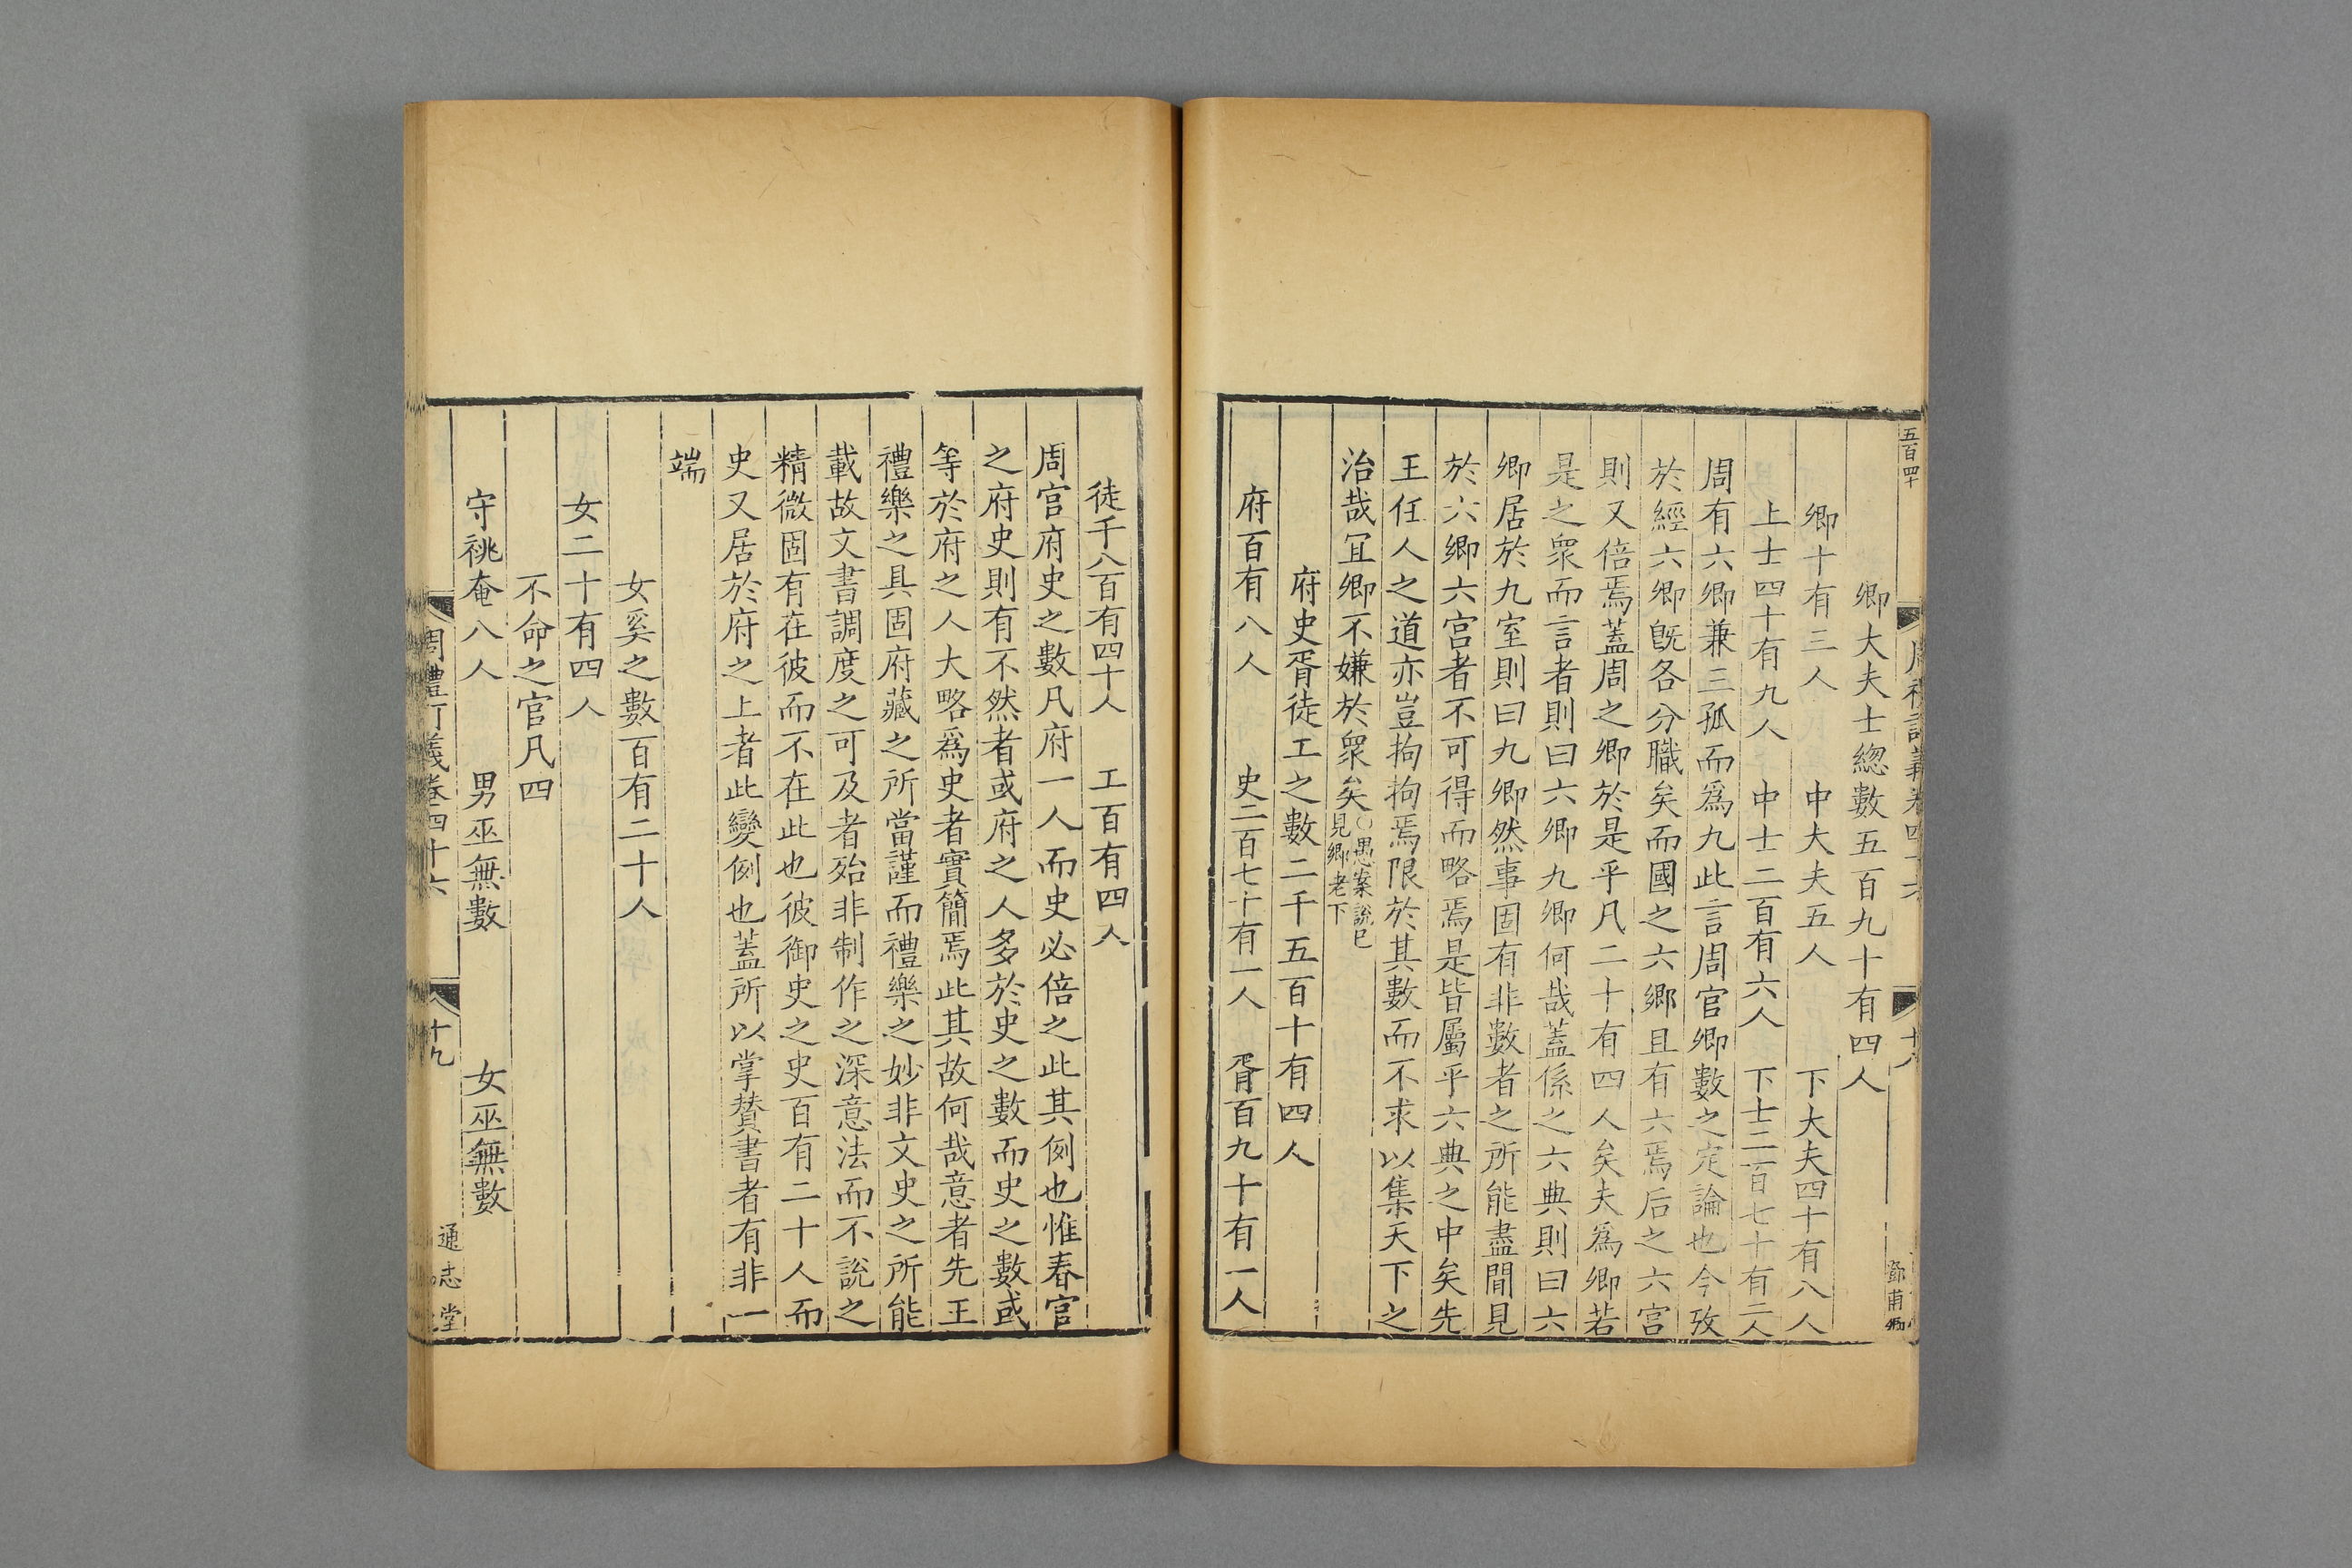 五百四十
周禮訂義卷四十六
十八
鄧甫卿
卿大夫士緫數五百九十有四人
卿十有三人　中大夫五人　下大夫四十有八人
上士四十有九人　中士二百有六人　下士二百七十有二人
周有六卿兼三孤而爲九此言周官卿數之定論也今攷
於經六卿旣各分職矣而國之六鄉且有六焉后之六宮
則又倍焉蓋周之卿於是乎凡二十有四人矣夫爲卿若
是之衆而言者則曰六卿九卿何哉蓋係之六典則曰六
卿居於九室則曰九卿然事固有非數者之所能盡間見
於六鄉六宮者不可得而略焉是皆屬乎六典之中矣先
王任人之道亦豈拘拘焉限於其數而不求以集天下之
治哉冝卿不嫌於衆矣○愚案說已見鄉老下
府史胥徒工之數二千五百十有四人
府百有八人　史二百七十有一人　胥百九十有一人
徒千八百有四十人　工百有四人
周官府史之數凡府一人而史必倍之此其例也惟春官
之府史則有不然者或府之人多於史之數而史之數或
等於府之人大略爲史者實簡焉此其故何哉意者先王
禮樂之具固府藏之所當謹而禮樂之妙非文史之所能
載故文書調度之可及者殆非制作之深意法而不說之
精微固有在彼而不在此也彼御史之史百有二十人而
史又居於府之上者此變例也蓋所以掌贊書者有非一
端
女奚之數百有二十人
女二十有四人
不命之官凡四
守祧奄八人　男巫無數　女巫無數
周禮訂義卷四十六
十九
通志堂